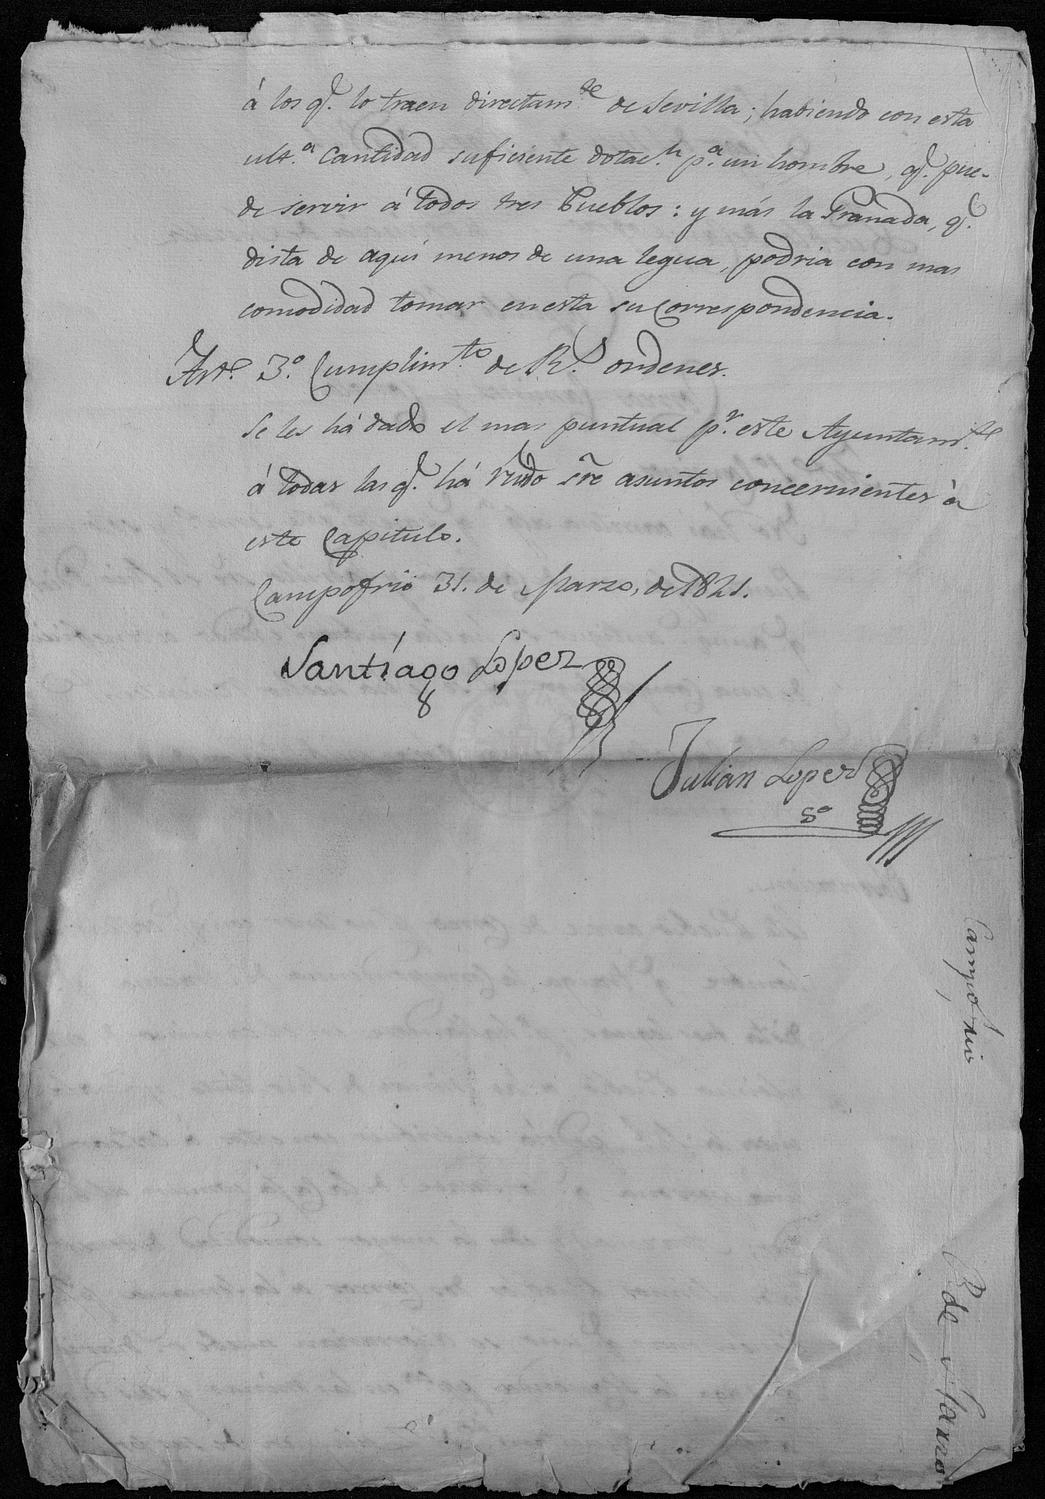 á los q.e lo traen directam.te de Sevilla; habiendo con esta
ult.a Cantidad suficiente dotac.n p.a un hombre, q.e pue-
de servir á todos tres Pueblos: y más la Granada, q.e
dista de aquí menos de una legua, podria con mas
comodidad tomar en esta su Correspondencia.
Art.o 3.o Cumplim.to de R.s ordenes.
Se les há dado el mas puntual p.r este Ayuntam.te
á todas las q.e há rvido sre asuntos concernientes á
este Capitulo.
Campofrio 31. de Marzo, de 1821.
Santiago Lopez
Julián Lopez
S.o
Campofrio